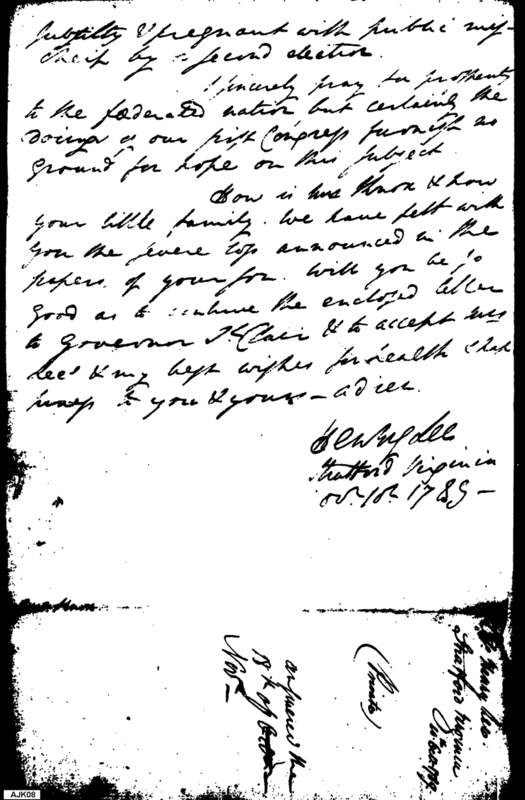 subtilty & pregnant with public mis-
cheif by a second election.
I sincerely pray for prosperity
to the fœderated nation but certainly the
doings of our first Congress furnish no
ground for hope on this subject.
How is mrs Knox & how
your little family. We have felt with
you the severe loss announced in the
papers of your son. Will you be so
good as to the enclosed letter
to Governor St Clair & to accept mrs
Lee's & my best wishes for health & hap
piness to you & yours — adieu.
Henry Lee
Stratford Virginia
Octr. 10h. 1789 —
Knox
Henry Lee
Stratford Virginia
10 October 1789
(Private)
answered the
18th of
Novr —
AJK08